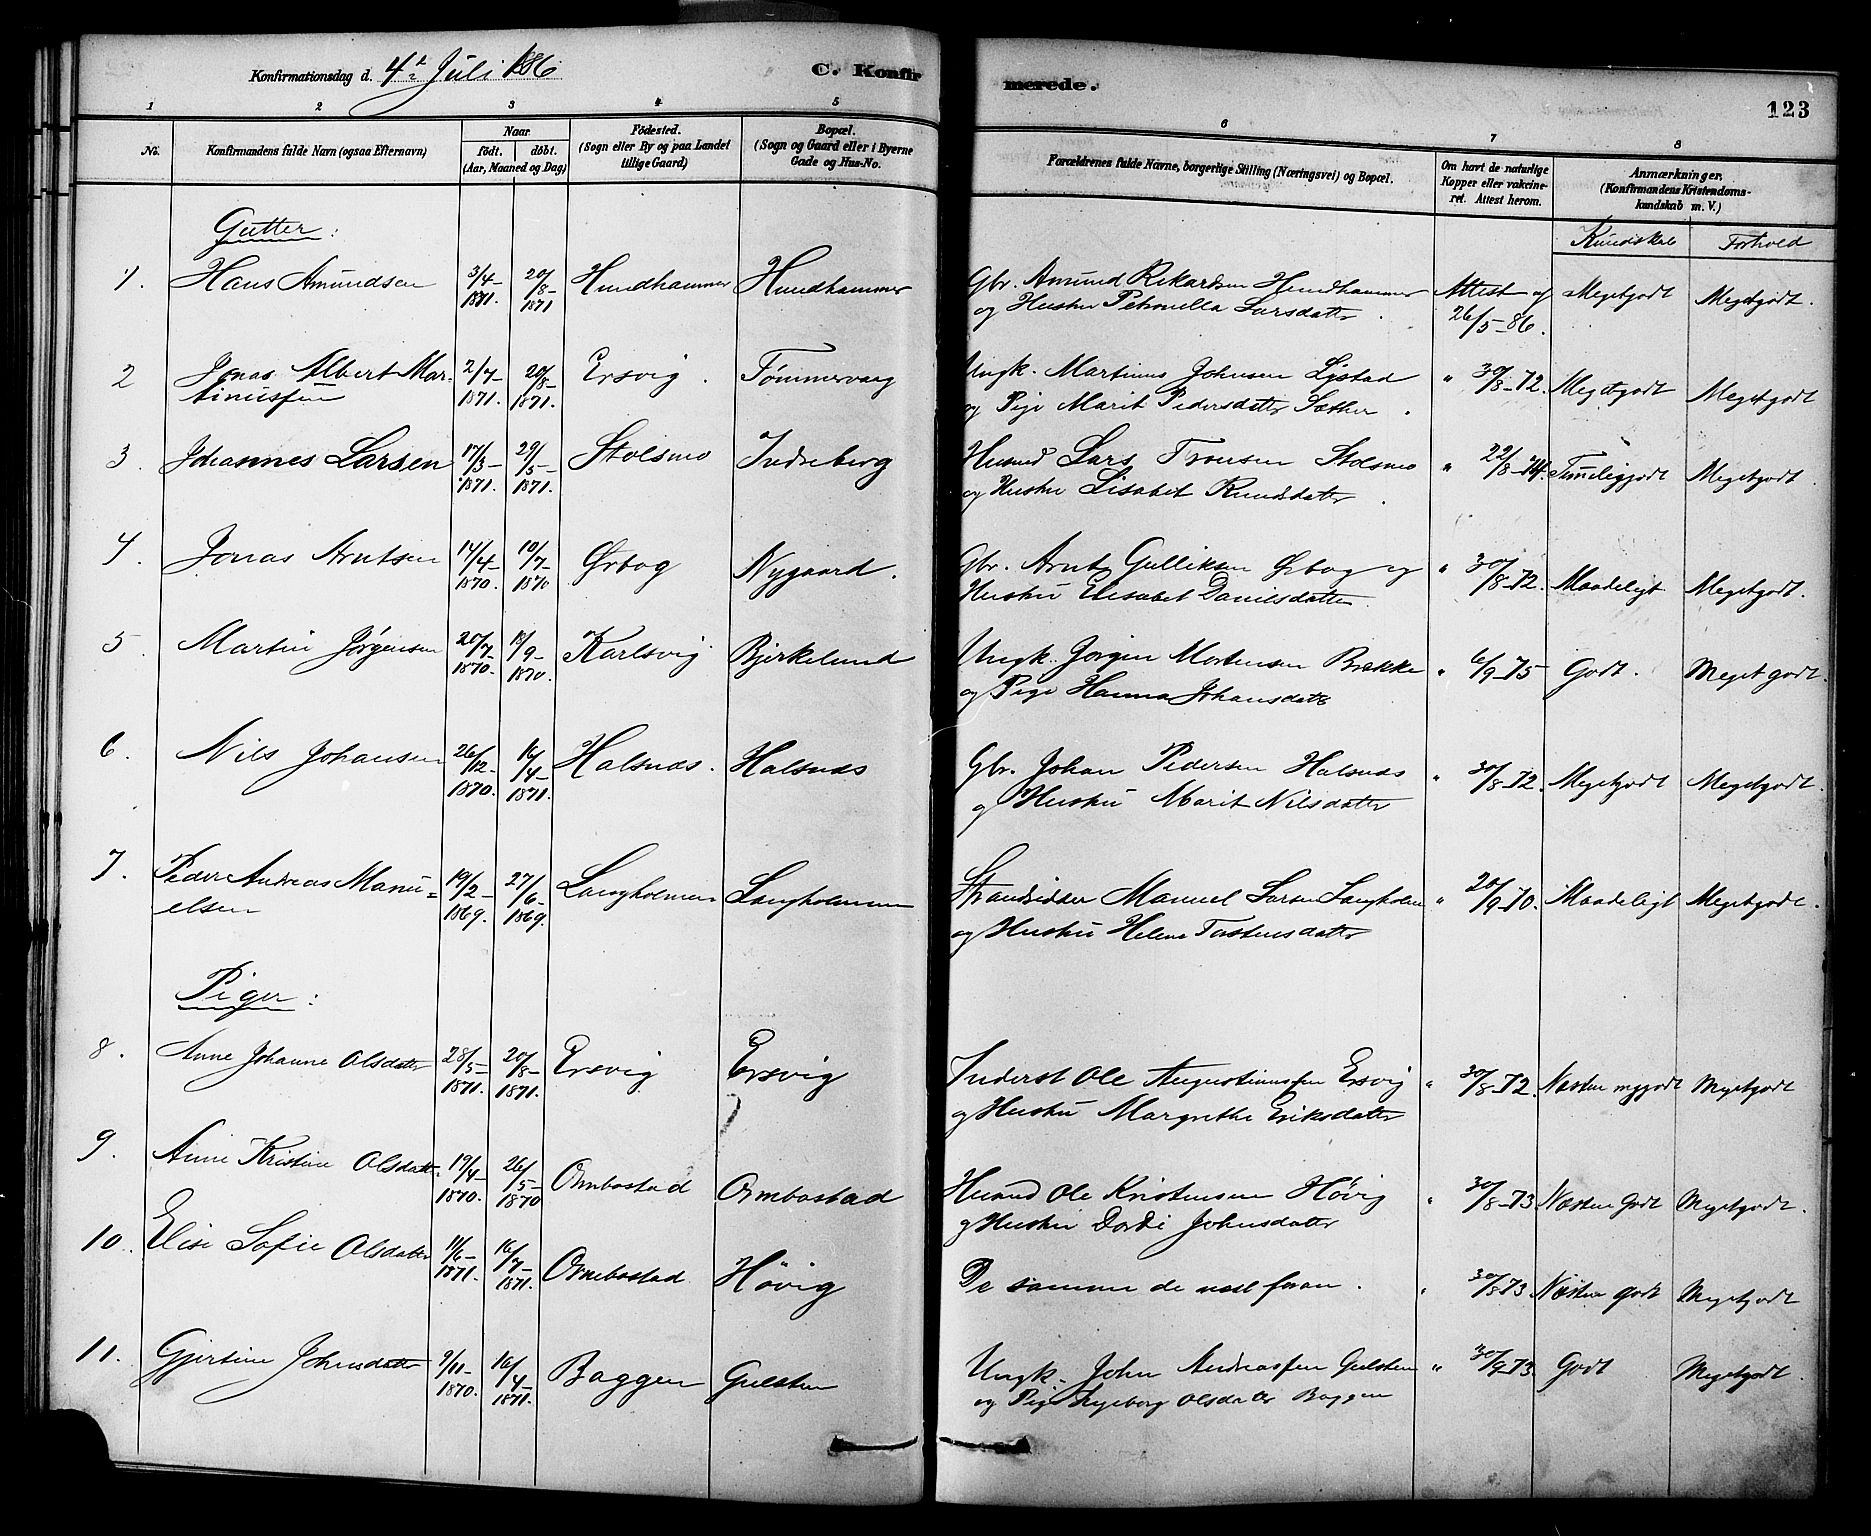 Konfirmationsdag d. 4de Juli 1886
C. Konfirmerede.
123
1 2 3 4 5 6 7 8
No. Konfirmandens fulde Navn (ogsaa Efternavn) Naar født. døbt. (Aar, Maaned og Dag) Födested. (Sogn eller By og paa Landet tillige Gaard) Bopæl. (Sogn og Gaard eller i Byerne Gade og Hus-No. Forældrenes fulde Navne, borgerlige Stilling (Næringsvei) og Bopæl. Om havt de naturlige Kopper eller vakcineret. Attest herom. Anmærkninger. (Konfirmandens Kristendomskundskab m. V.)
Kundskab Forhold
Gutter:
1. Hans Amundsen 3/4-1871. 20/8-1871 Hundhammer Hundhammer Gbr. Amund Rikardsen Hundhammer Attest af Megetgodt Megetgodt.
og Hustru Petronella Larsdatter. 26/5-86.
2 Jonas Albert Mar- 2/7-1871. 20/8-1871. Ersvig. Tømmervaag Ungk. Martinus Johnsen Lystad " 30/8-72. Megetgodt Megetgodt
tinussen og Pige Marit Pedersdatter Sæther.
3. Johannes Larsen 17/3-1871. 29/5-1871. Stolsmo Indreberg Husmd Lars Tronsen Stolsmo " 22/8-74. Temeligodt Megetgodt.
og Hustru Lisabet Knudsdatter.
4. Jonas Arntsen 14/4-1870. 10/7-1870 Ørbog Nygaard. Gbr. Arnt Gulliksen Ørbog og " 30/8-72. Maadeligt Megetgodt.
Hustru Elisabet Danielsdatter.
5. Martin Jørgensen 20/7-1870. 18/9-1870. Karlsvig Bjerkelund Ungk. Jørgen Mortensen Brække " 6/9-75 Godt. Megetgodt.
og Pige Hanna Johansdatter
6. Nils Johansen 26/12-1870. 16/4-1871. Halsnæs. Halsnæs Gbr. Johan Pedersen Halsnæs " 30/8-72. Megetgodt Megetgodt.
og Hustru Marit Nilsdatter
7. Peder Andreas Manu= 19/2-1869. 27/6-1869. Langholmen Langholmen Strandsidder Manuel Larsen Langholmen " 20/9-70. Maadeligt Megetgodt.
elsen og Hustru Helene Tostensdatter
Piger:
8. Anne Johanne Olsdatter 28/5-1871. 20/8-1871. Ersvig Ersvig Inderst Ole Augustinussen Ersvig " 30/8-72. Næsten mgodt Megetgodt
og Hustru Margrethe Eriksdatter
9. Anne Kristine Olsdatt. 19/4-1870. 26/5-1870 Ormbostad Ormbostad Husmd Ole Kristensen Høvig " 30/8-73 Næsten Godt Megetgodt.
og Hustru Dordi Johnsdatter
10. Elise Sofie Olsdatter 11/6-1871. 16/7-1871. Ormbostad Høvig De samme de næst foran. " 30/8-73 Næsten godt Megetgodt
11. Gjertine Johnsdatter 9/11-1870. 16/4-1871. Baggen Gulsten Ungk. John Andreassen Gulsten " 30/9-73. Godt Megetgodt.
og Pige Ingeborg Olsdatter Baggen